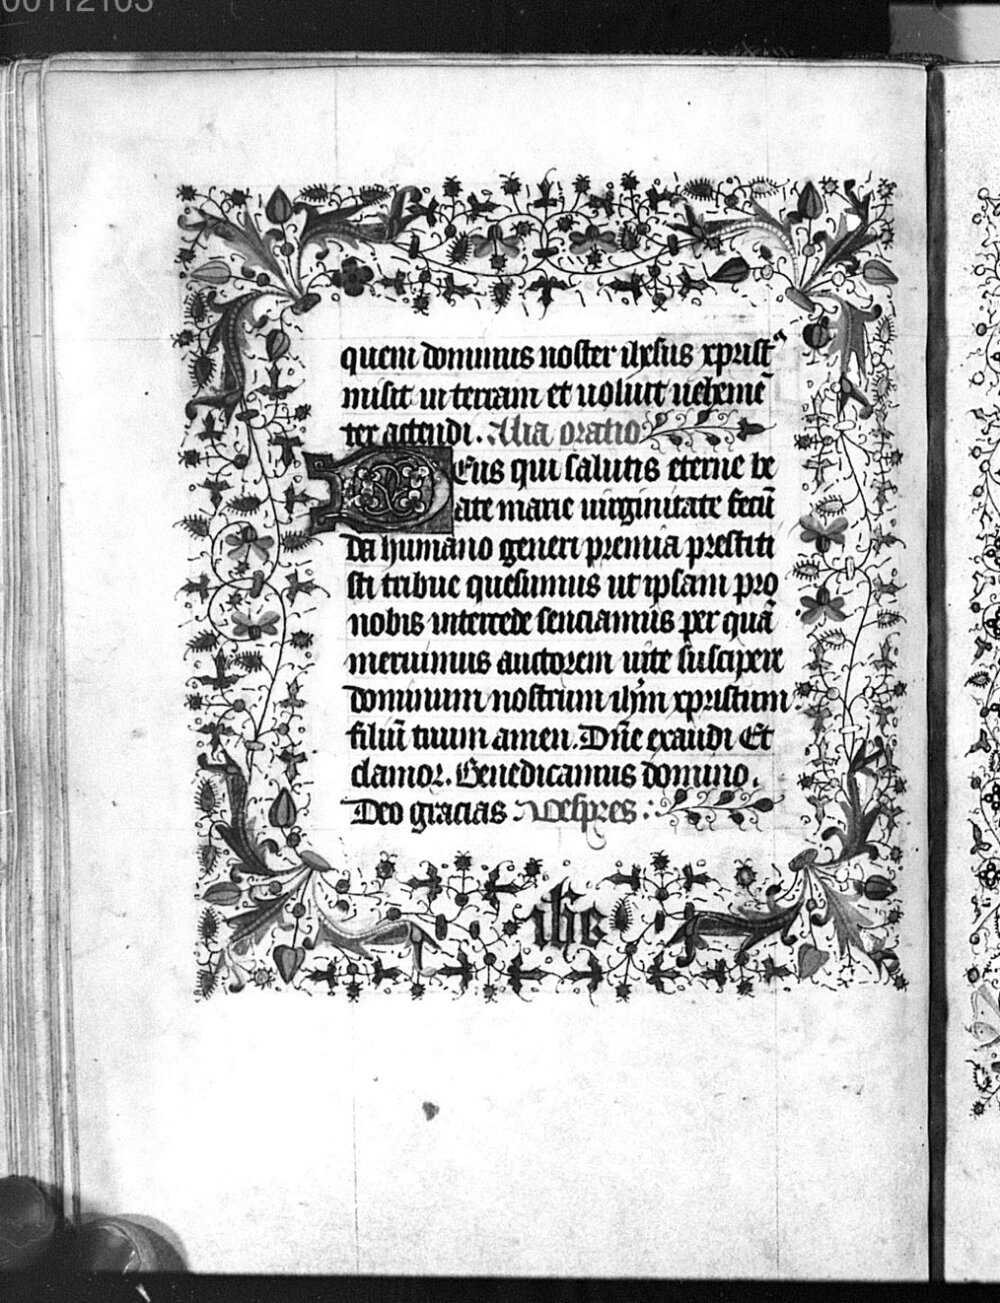 00112103
quem dominus noster ihesus xprist
misit in terram et uoluit uehemē
ter accendi. Alia oratio
Deus qui salutis eterne be
ate marie uirginitate fecū
da humano generi premia prestiti
sti tribue quesumus ut ipsam pro
nobis intercede senciamus per quā
meruimus auctorem uite suscipere
dominum nostrum ihm̄ xpristum
filiū tuum amen. Dn̄e exaudi Et
clamor. Benedicamus domino.
Deo gracias Vespres
ihs